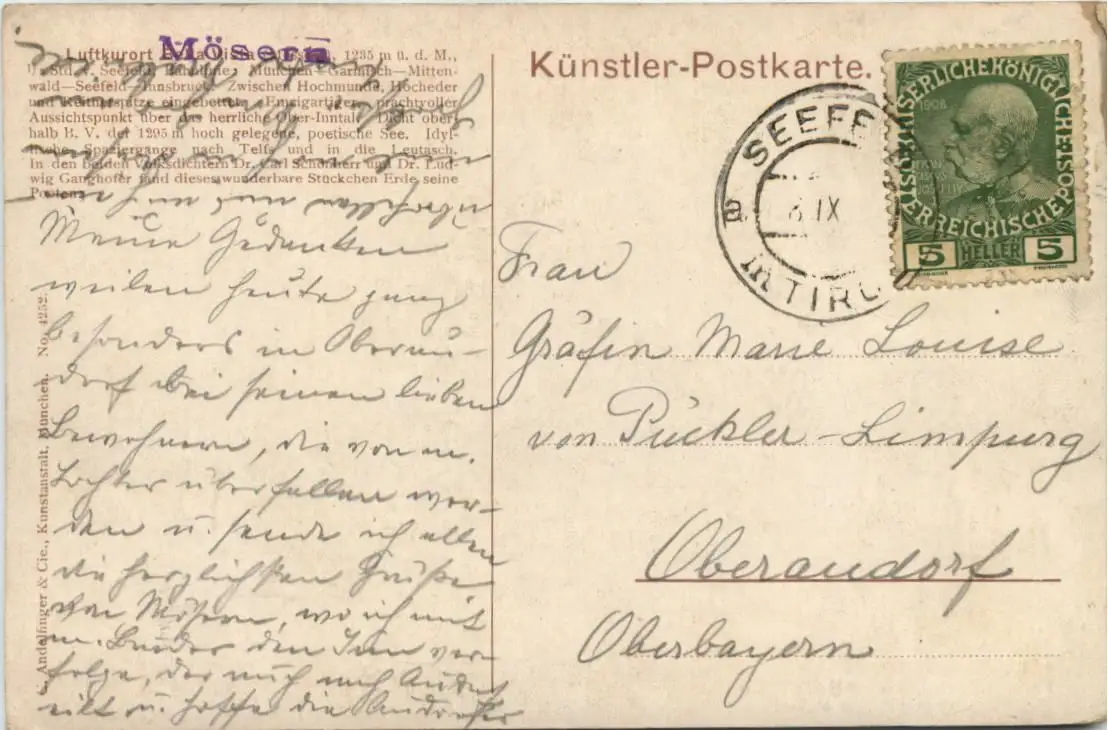 Mösern
Luftkurort Bella Vista (Mösern), 1295 m ü. d. M.,
Std. v. Seefeld, Bahnlinie: München—Garmisch—Mitten-
wald—Seefeld—Innsbruck. Zwischen Hochmunde, Hocheder
und Reitherspitze eingebettet. Einzigartiger, prachtvoller
Aussichtspunkt über das herrliche Ober-Inntal. Dicht ober-
halb B. V. der 1295 m hoch gelegene, poetische See. Idyl-
lische Spaziergänge nach Telfs und in die Leutasch.
In den beiden Volksdichtern Dr. Carl Schönherr und Dr. Lud-
wig Ganghofer fand dieses wunderbare Stückchen Erde seine
Poeten.
Meine Gedanken
weilen heute ganz
besonders in Oberau-
dorf bei seinen lieben
Bewohnern, die von m.
Tochter überfallen wer-
den u. sende ich allen
die herzlichsten Grüße
von Mösern, wo ich mit
m. Bruder den Inn ver-
folge, der auch nach Audorf
eilt u. hoffe die Audorfer
C. Andelfinger & Cie., Kunstanstalt, München. No. 4252.
Künstler-Postkarte.
SEEFE
a
IX
in TIRO
KAISERLICHE KÖNIGLICHE ÖSTERREICHISCHE POST
1908
5 HELLER 5
Frau
Gräfin Marie Louise
von Pückler-Limpurg
Oberaudorf
Oberbayern